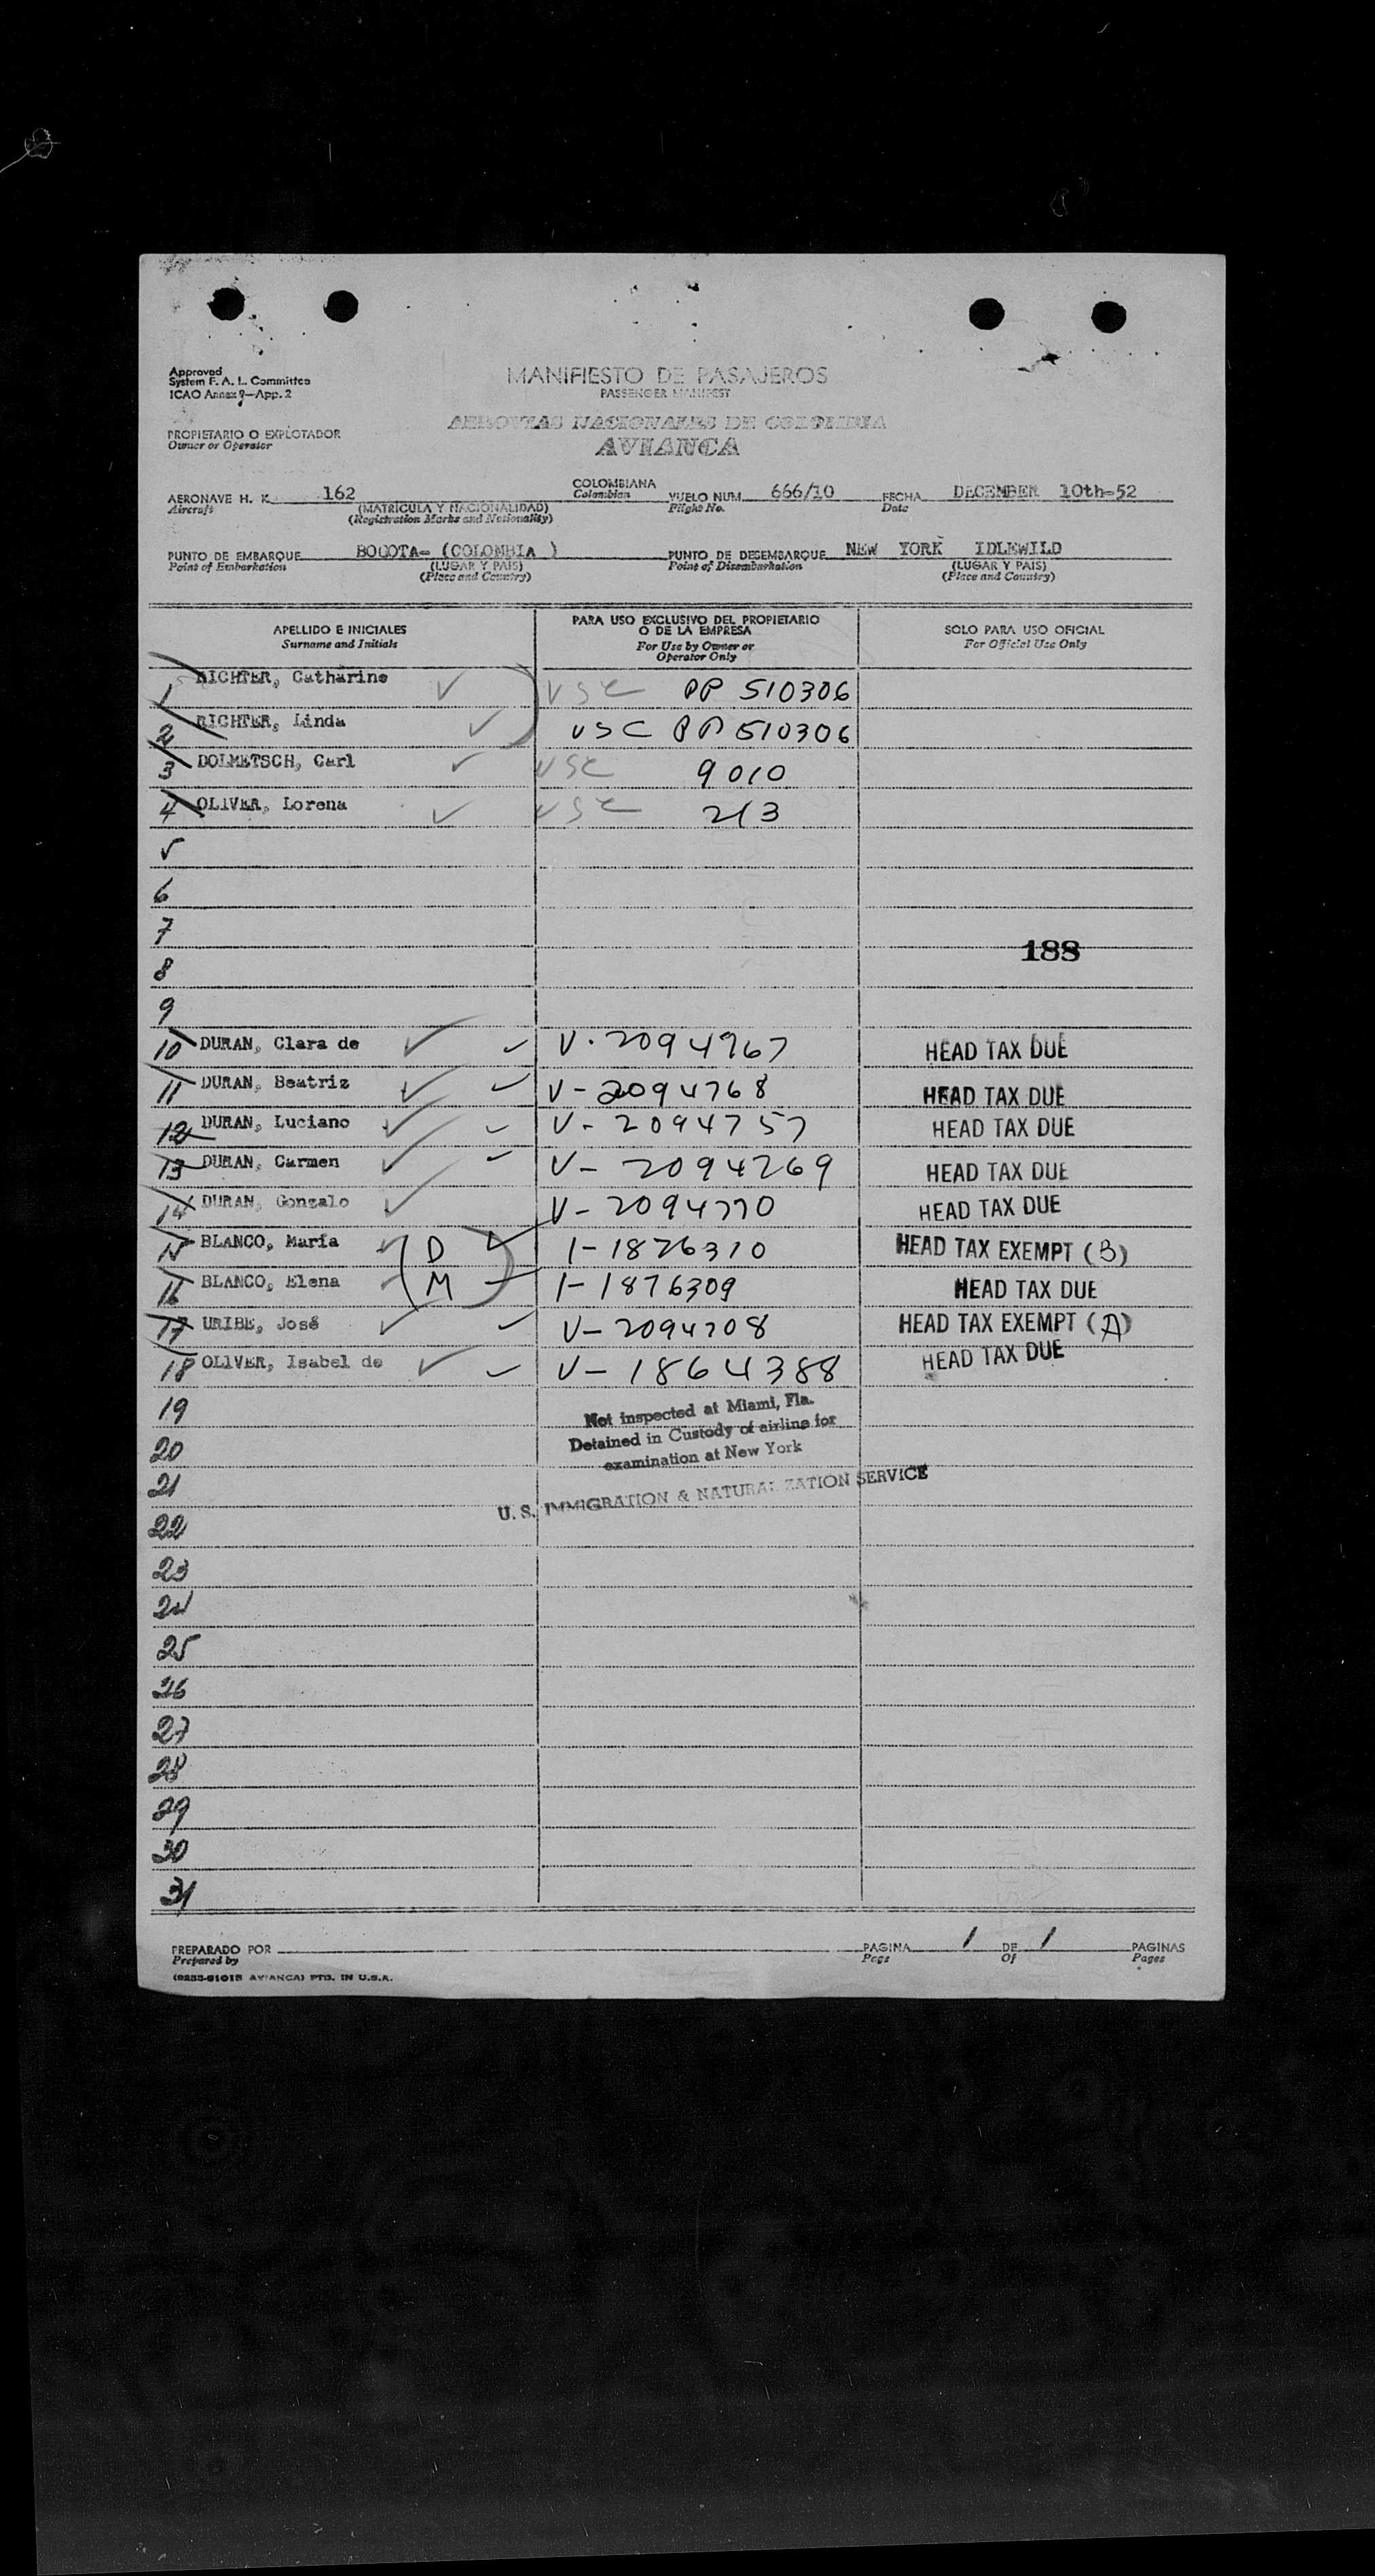 Approved
System F. A. L. Committee
ICAO Annex 9—App. 2
MANIFIESTO DE PASAJEROS
PASSENGER MANIFEST
PROPIETARIO O EXPLOTADOR
Owner or Operator
AEROVIAS NACIONALES DE COLOMBIA
AVIANCA
AERONAVE H. K. 162 COLOMBIANA VUELO NUM. 666/10 FECHA DECEMBER 10th-52
Aircraft (MATRICULA Y NACIONALIDAD) Colombian Flight No. Date
(Registration Marks and Nationality)
PUNTO DE EMBARQUE BOGOTA- (COLOMBIA ) PUNTO DE DESEMBARQUE NEW YORK IDLEWILD
Point of Embarkation (LUGAR Y PAIS) Point of Disembarkation (LUGAR Y PAIS)
(Place and Country) (Place and Country)
APELLIDO E INICIALES
Surname and Initials
PARA USO EXCLUSIVO DEL PROPIETARIO
O DE LA EMPRESA
For Use by Owner or
Operator Only
SOLO PARA USO OFICIAL
For Official Use Only
1 RICHTER, Catharine ✓ USC PP 510306
2 RICHTER, Linda ✓ USC PP 510306
3 DOLMETSCH, Carl ✓ USC 9010
4 OLIVER, Lorena ✓ USC 213
5
6
7
188
8
9
10 DURAN, Clara de ✓ ✓ V-2094767 HEAD TAX DUE
11 DURAN, Beatriz ✓ ✓ V-2094768 HEAD TAX DUE
12 DURAN, Luciano ✓ ✓ V-2094757 HEAD TAX DUE
13 DURAN, Carmen ✓ ✓ V-2094769 HEAD TAX DUE
14 DURAN, Gonzalo ✓ V-2094770 HEAD TAX DUE
15 BLANCO, María ✓ (D ✓ I-1876310 HEAD TAX EXEMPT (B)
16 BLANCO, Elena ✓ (M ✓ I-1876309 HEAD TAX DUE
17 URIBE, José ✓ ✓ V-2094708 HEAD TAX EXEMPT (A)
18 OLIVER, Isabel de ✓ ✓ V-1864388 HEAD TAX DUE
19
Not inspected at Miami, Fla.
Detained in Custody of airline for
20
examination at New York
21
U. S. IMMIGRATION & NATURALIZATION SERVICE
22
23
24
25
26
27
28
29
30
31
PREPARADO POR PAGINA 1 DE 1 PAGINAS
Prepared by Page Of Pages
(8233-6101B AVIANCA) PTD. IN U.S.A.